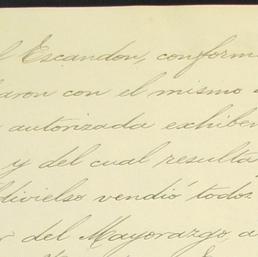 l Escandon, conform
aron con el mismo
autorizada exhiben
y del cual resulta
ldivielso vendió todos
del Mayorazgo, a